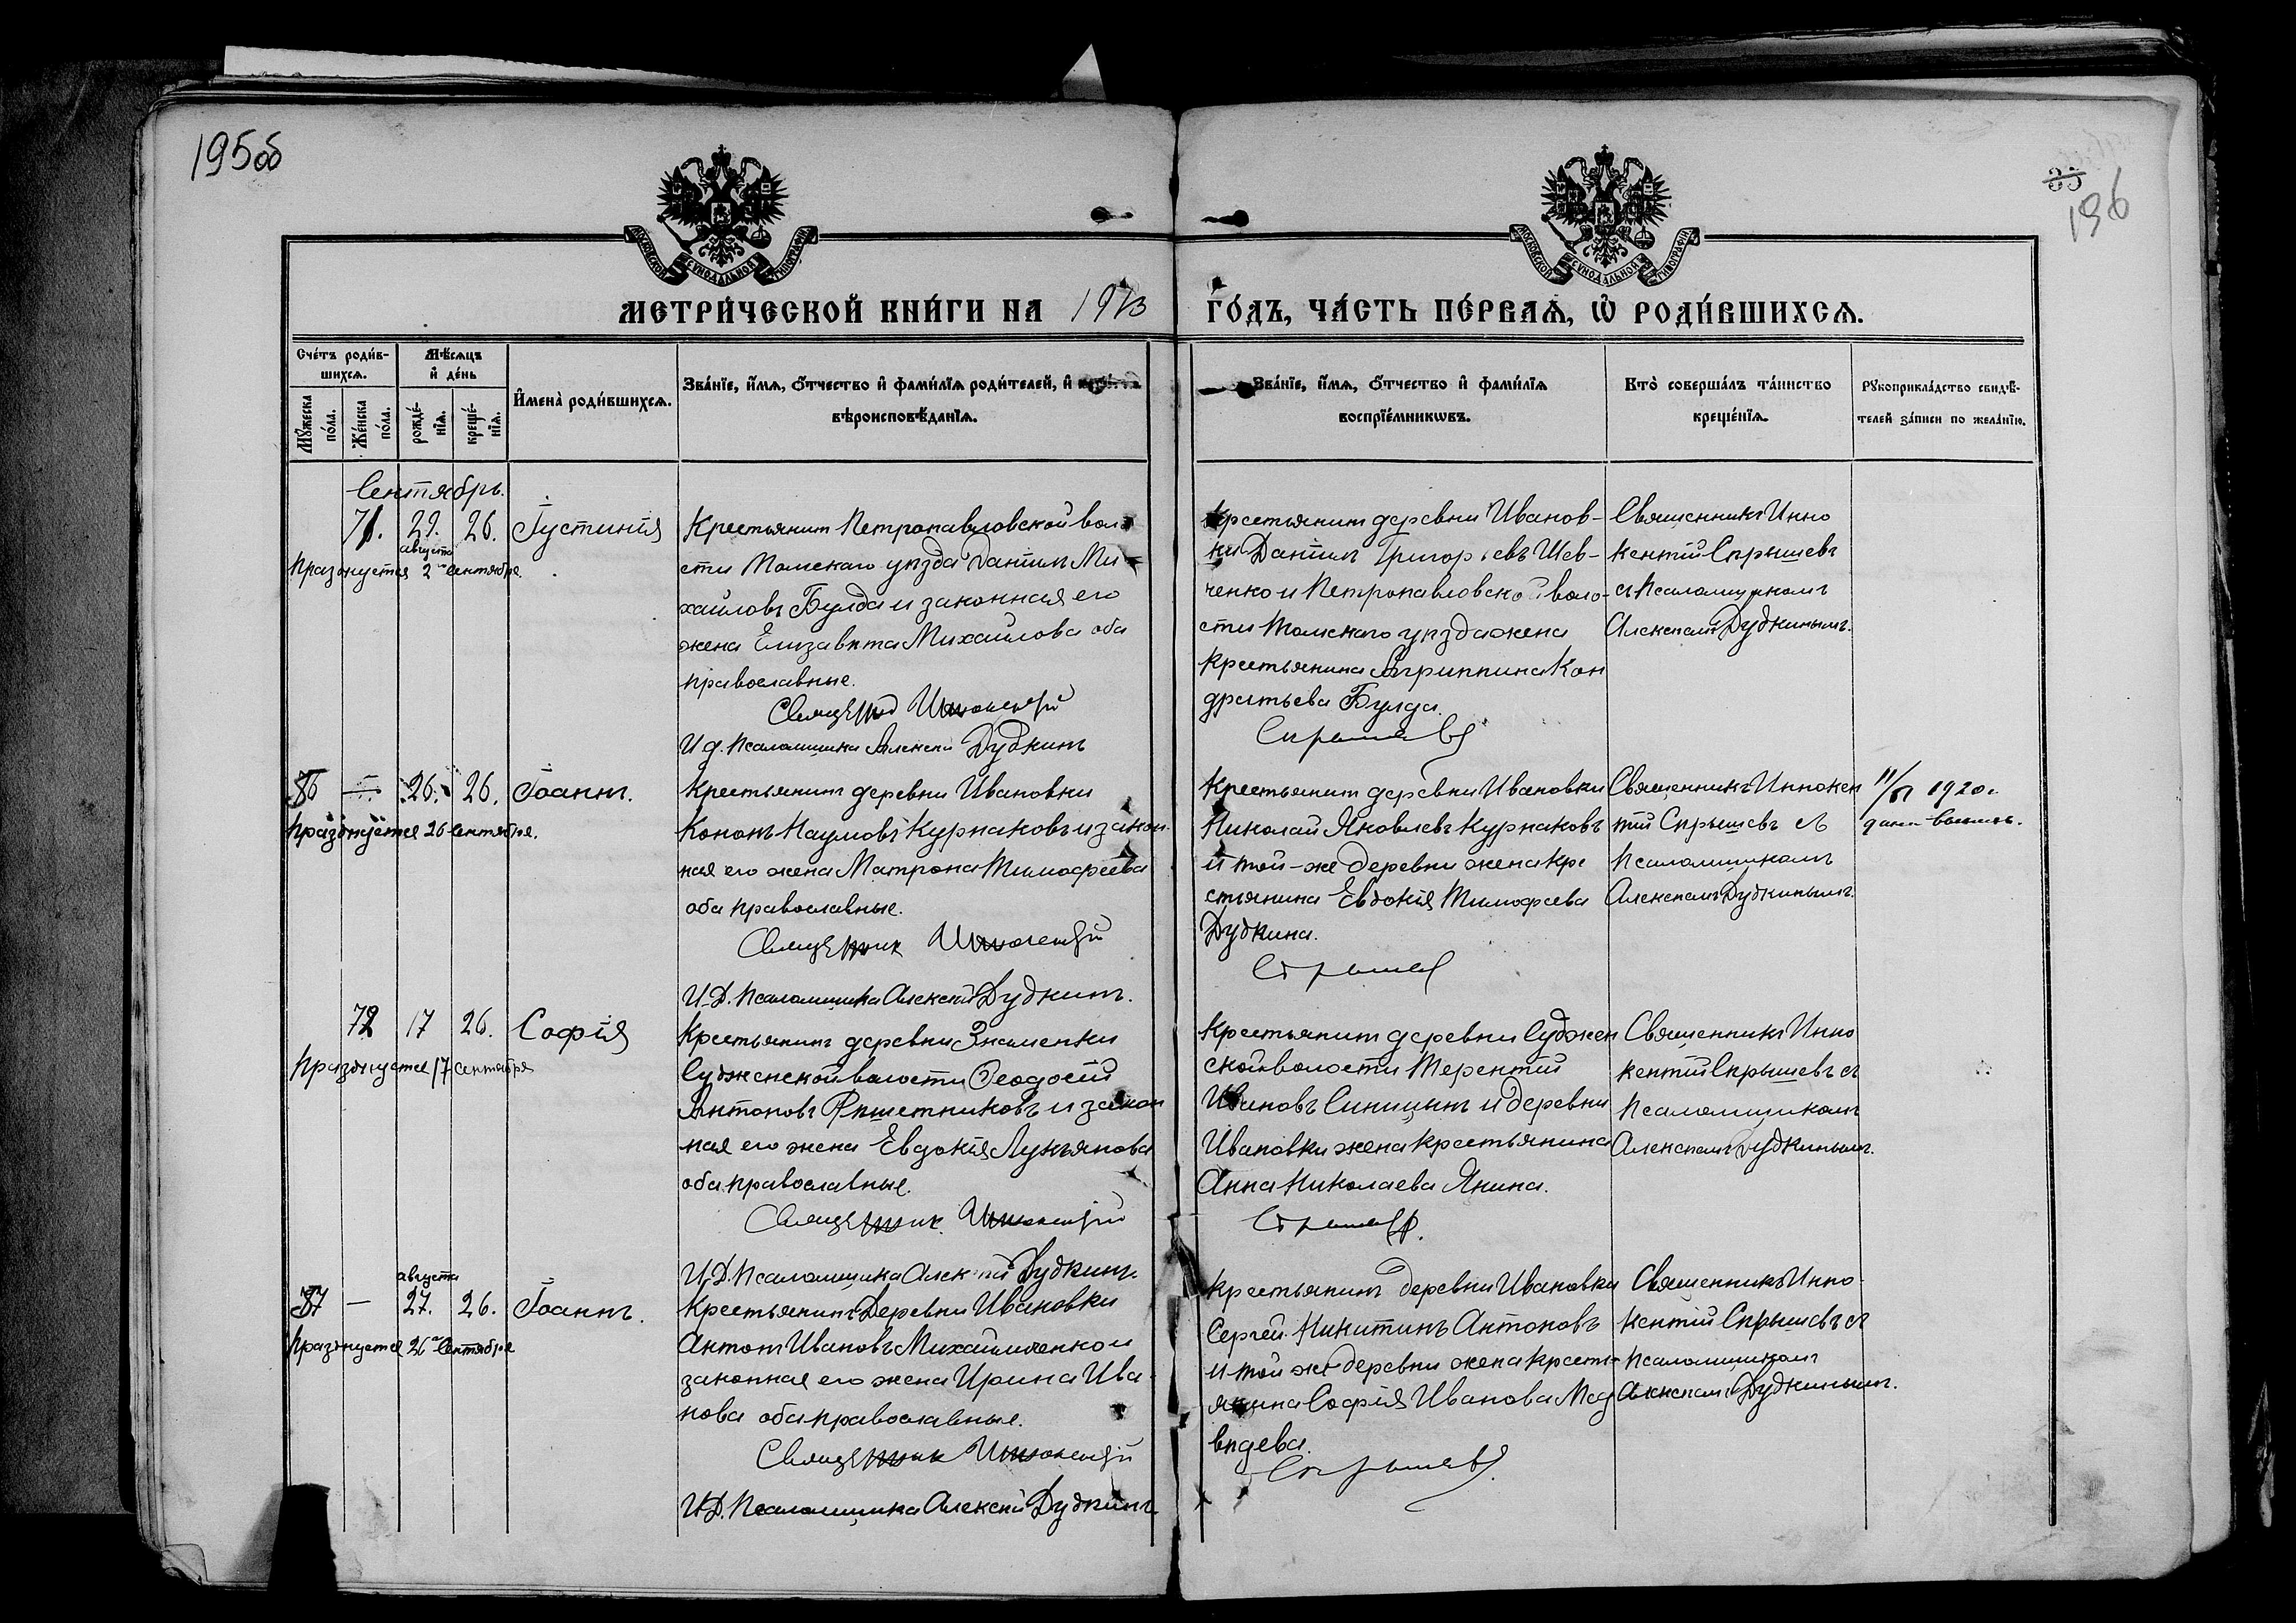 195об
196
МОСКОВСКОЙ СѴНОДАЛЬНОЙ ТИПОГРАФІИ
МОСКОВСКОЙ СѴНОДАЛЬНОЙ ТИПОГРАФІИ
МЕТРИ́ЧЕСКОЙ КНИ́ГИ НА 1913 ГО́ДЪ, ЧА́СТЬ ПЕ́РВАѦ, Ѡ҆ РОДИ́ВШИХСѦ.
Сче́тъ роди́в-
шихсѧ.
Мѣ́сѧцъ
и҆ де́нь
Мꙋ́жеска
по́ла.
Же́нска
по́ла.
рожде́-
нїѧ.
креще́-
нїѧ.
И҆мена̀ роди́вшихсѧ.
Зва́нїе, и҆́мѧ, ѻ҆́тчество и҆ фами́лїѧ роди́телей, и҆
вѣроисповѣ́данїѧ.
Зва́нїе, и҆́мѧ, ѻ҆́тчество и҆ фами́лїѧ
воспрїе́мникѡвъ.
Кто̀ соверша́лъ та́инство
креще́нїѧ.
Рꙋкоприкла́дство свидѣ́-
телей за́писи по жела́нїю.
Сентябрь.
71. 29. августа 26. Іустинія
празднуется 2го Сентября.
Крестьянинъ Петропавловской воло
сти Томскаго уѣзда Даніилъ Ми
хайловъ Булда и законная его
жена Елизавѣта Михайлова оба
православные.
Священ Иннокентій
И д. Псаломщика Алексѣй Дудкинъ
Крестьянинъ деревни Иванов-
ки Даніилъ Григорьевъ Шев-
ченко и Петропавловской воло-
сти Томскаго уѣзда жена
Крестьянина Агриппина Кон
дратьева Булда.
Спрышевъ
Священникъ Инно
кентій Спрышевъ
съ Псаломщикомъ
Алексѣемъ Дудкинымъ.
86 — 26. 26. Іоаннъ.
празднуется 26 Сентября.
Крестьянинъ деревни Ивановки
Кононъ Наумовъ Курпаковъ и закон-
ная его жена Матрона Тимофеева
оба православные.
Священник Иннокентій
И.Д. Псаломщика Алексѣй Дудкинъ.
Крестьянинъ деревни Ивановки
Николай Яковлевъ Курпаковъ
и той-же деревни жена кре
стьянина Евдокія Тимофеева
Дудкина.
Спрышев
Священникъ Иннокен
тій Спрышевъ съ
Псаломщикомъ
Алексѣемъ Дудкинымъ.
1920 г.
72 17 26. Софія
Празднуется 17 сентября
Крестьянинъ деревни Знаменки
Судженской волости Феодосій
Антоновъ Рѣшетниковъ и закон
ная его жена Евдокія Лукьянова
оба православные.
Священник Иннокентій
И.Д. Псаломщика Алексѣй Дудкинъ.
Крестьянинъ деревни Суджен
ской волости Терентій
Ивановъ Синицынъ и деревни
Ивановки жена крестьянина
Анна Николаева Янина.
Спрышев.
Священникъ Инно
кентій Спрышевъ съ
Псаломщикомъ
Алексѣемъ Дудкинымъ.
87 — августа 27. 26. Іоаннъ.
празднуется 26го Сентября
Крестьянинъ Деревни Ивановки
Антонъ Ивановъ Михайличенко и
законная его жена Ирина Ива-
нова оба православные.
Священник Иннокентій
И.Д. Псаломщика Алексѣй Дудкинъ
Крестьянинъ деревни Ивановки
Сергѣй Никитинъ Антоновъ
и той же деревни жена крестъ-
янина Софія Иванова Мед
вѣдева.
Спрышев.
Священникъ Инно-
кентій Спрышевъ съ
Псаломщикомъ
Алексѣемъ Дудкинымъ.